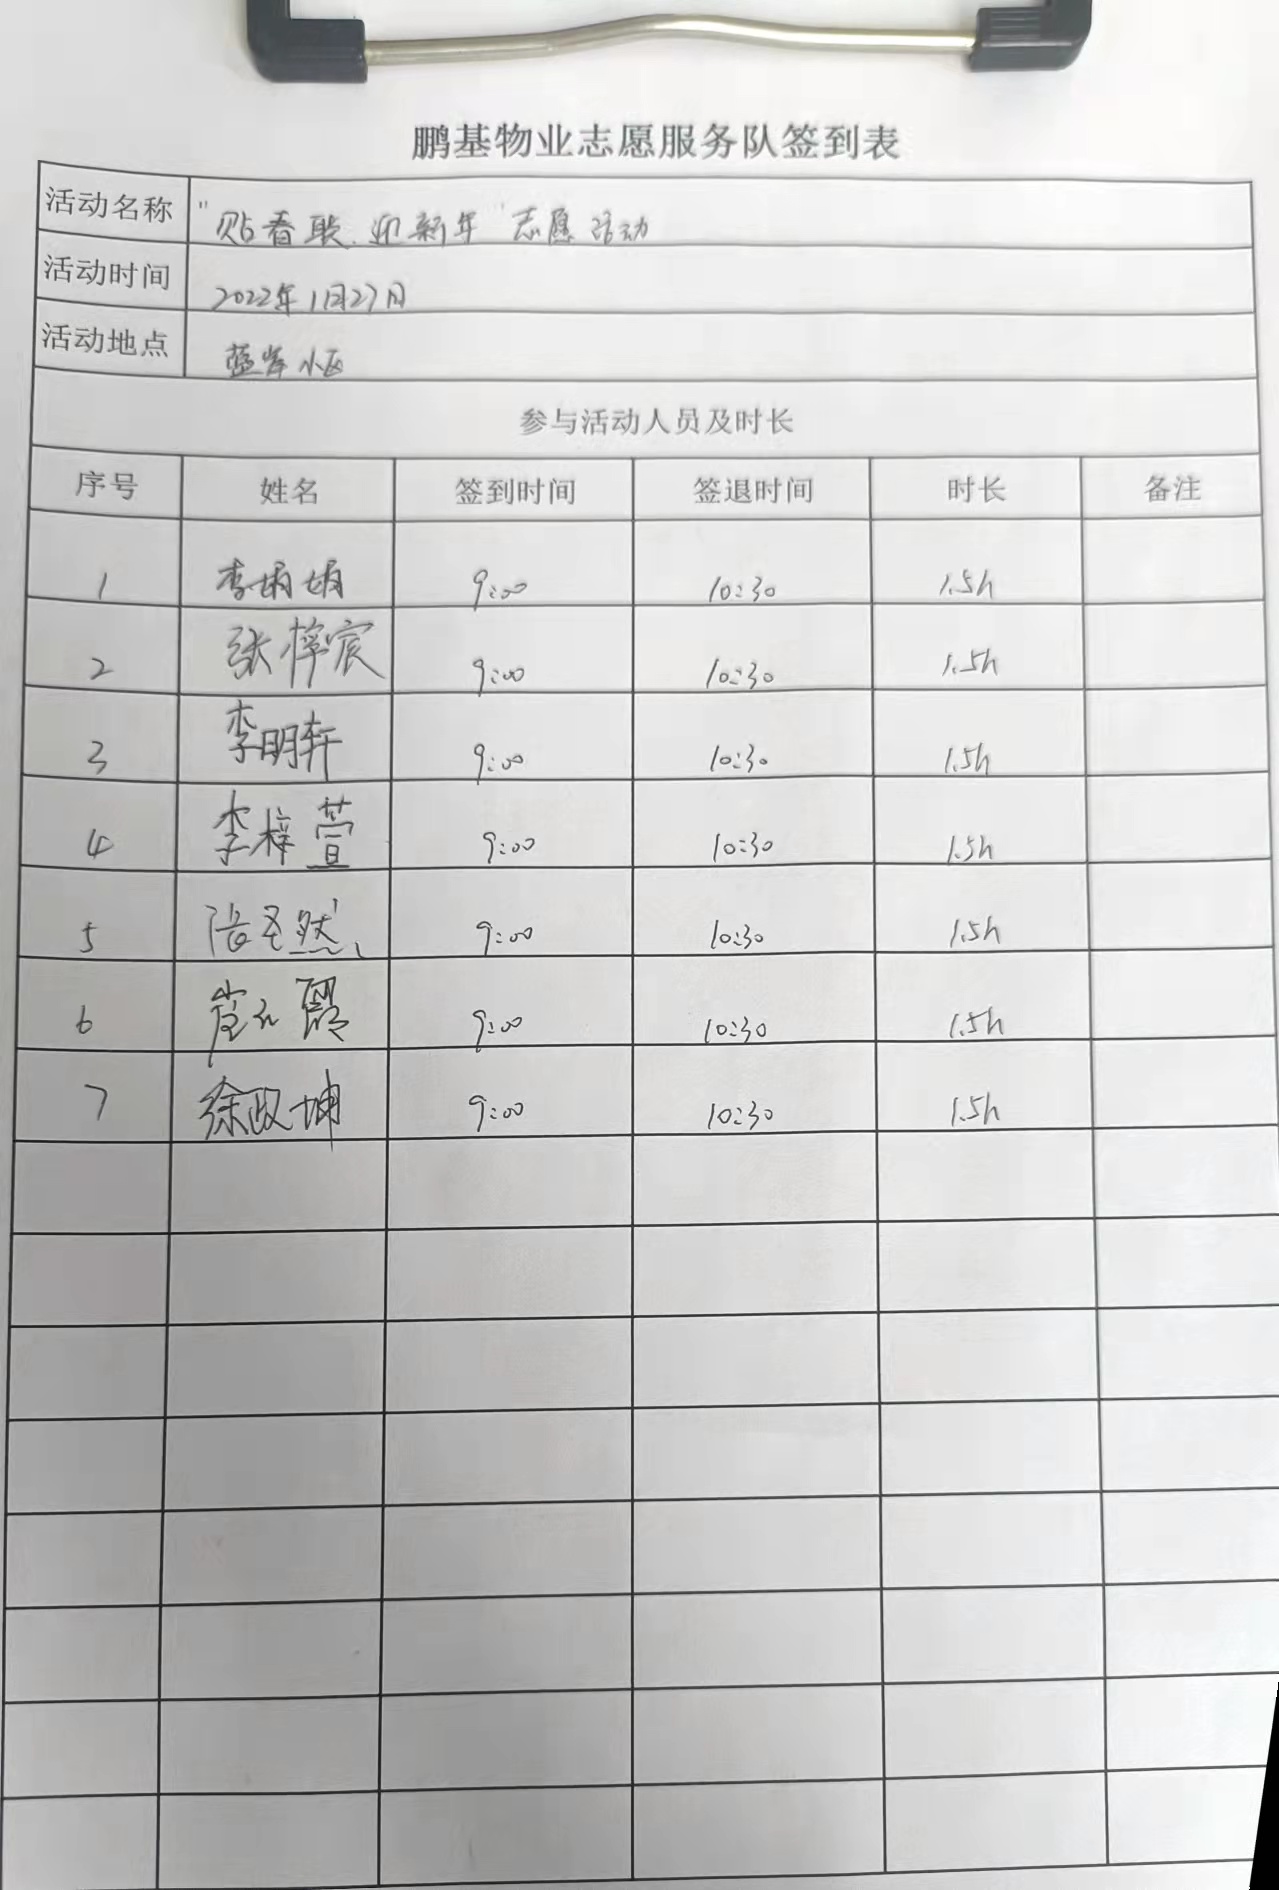 鹏基物业志愿服务队签到表
活动名称 "贴春联.迎新年"志愿活动
活动时间 2022年1月27日
活动地点 蓝岸小区
参与活动人员及时长
序号 姓名 签到时间 签退时间 时长 备注
1 李娟娟 9:00 10:30 1.5h
2 张梓宸 9:00 10:30 1.5h
3 李明轩 9:00 10:30 1.5h
4 李梓萱 9:00 10:30 1.5h
5 9:00 10:30 1.5h
6 9:00 10:30 1.5h
7 徐政坤 9:00 10:30 1.5h